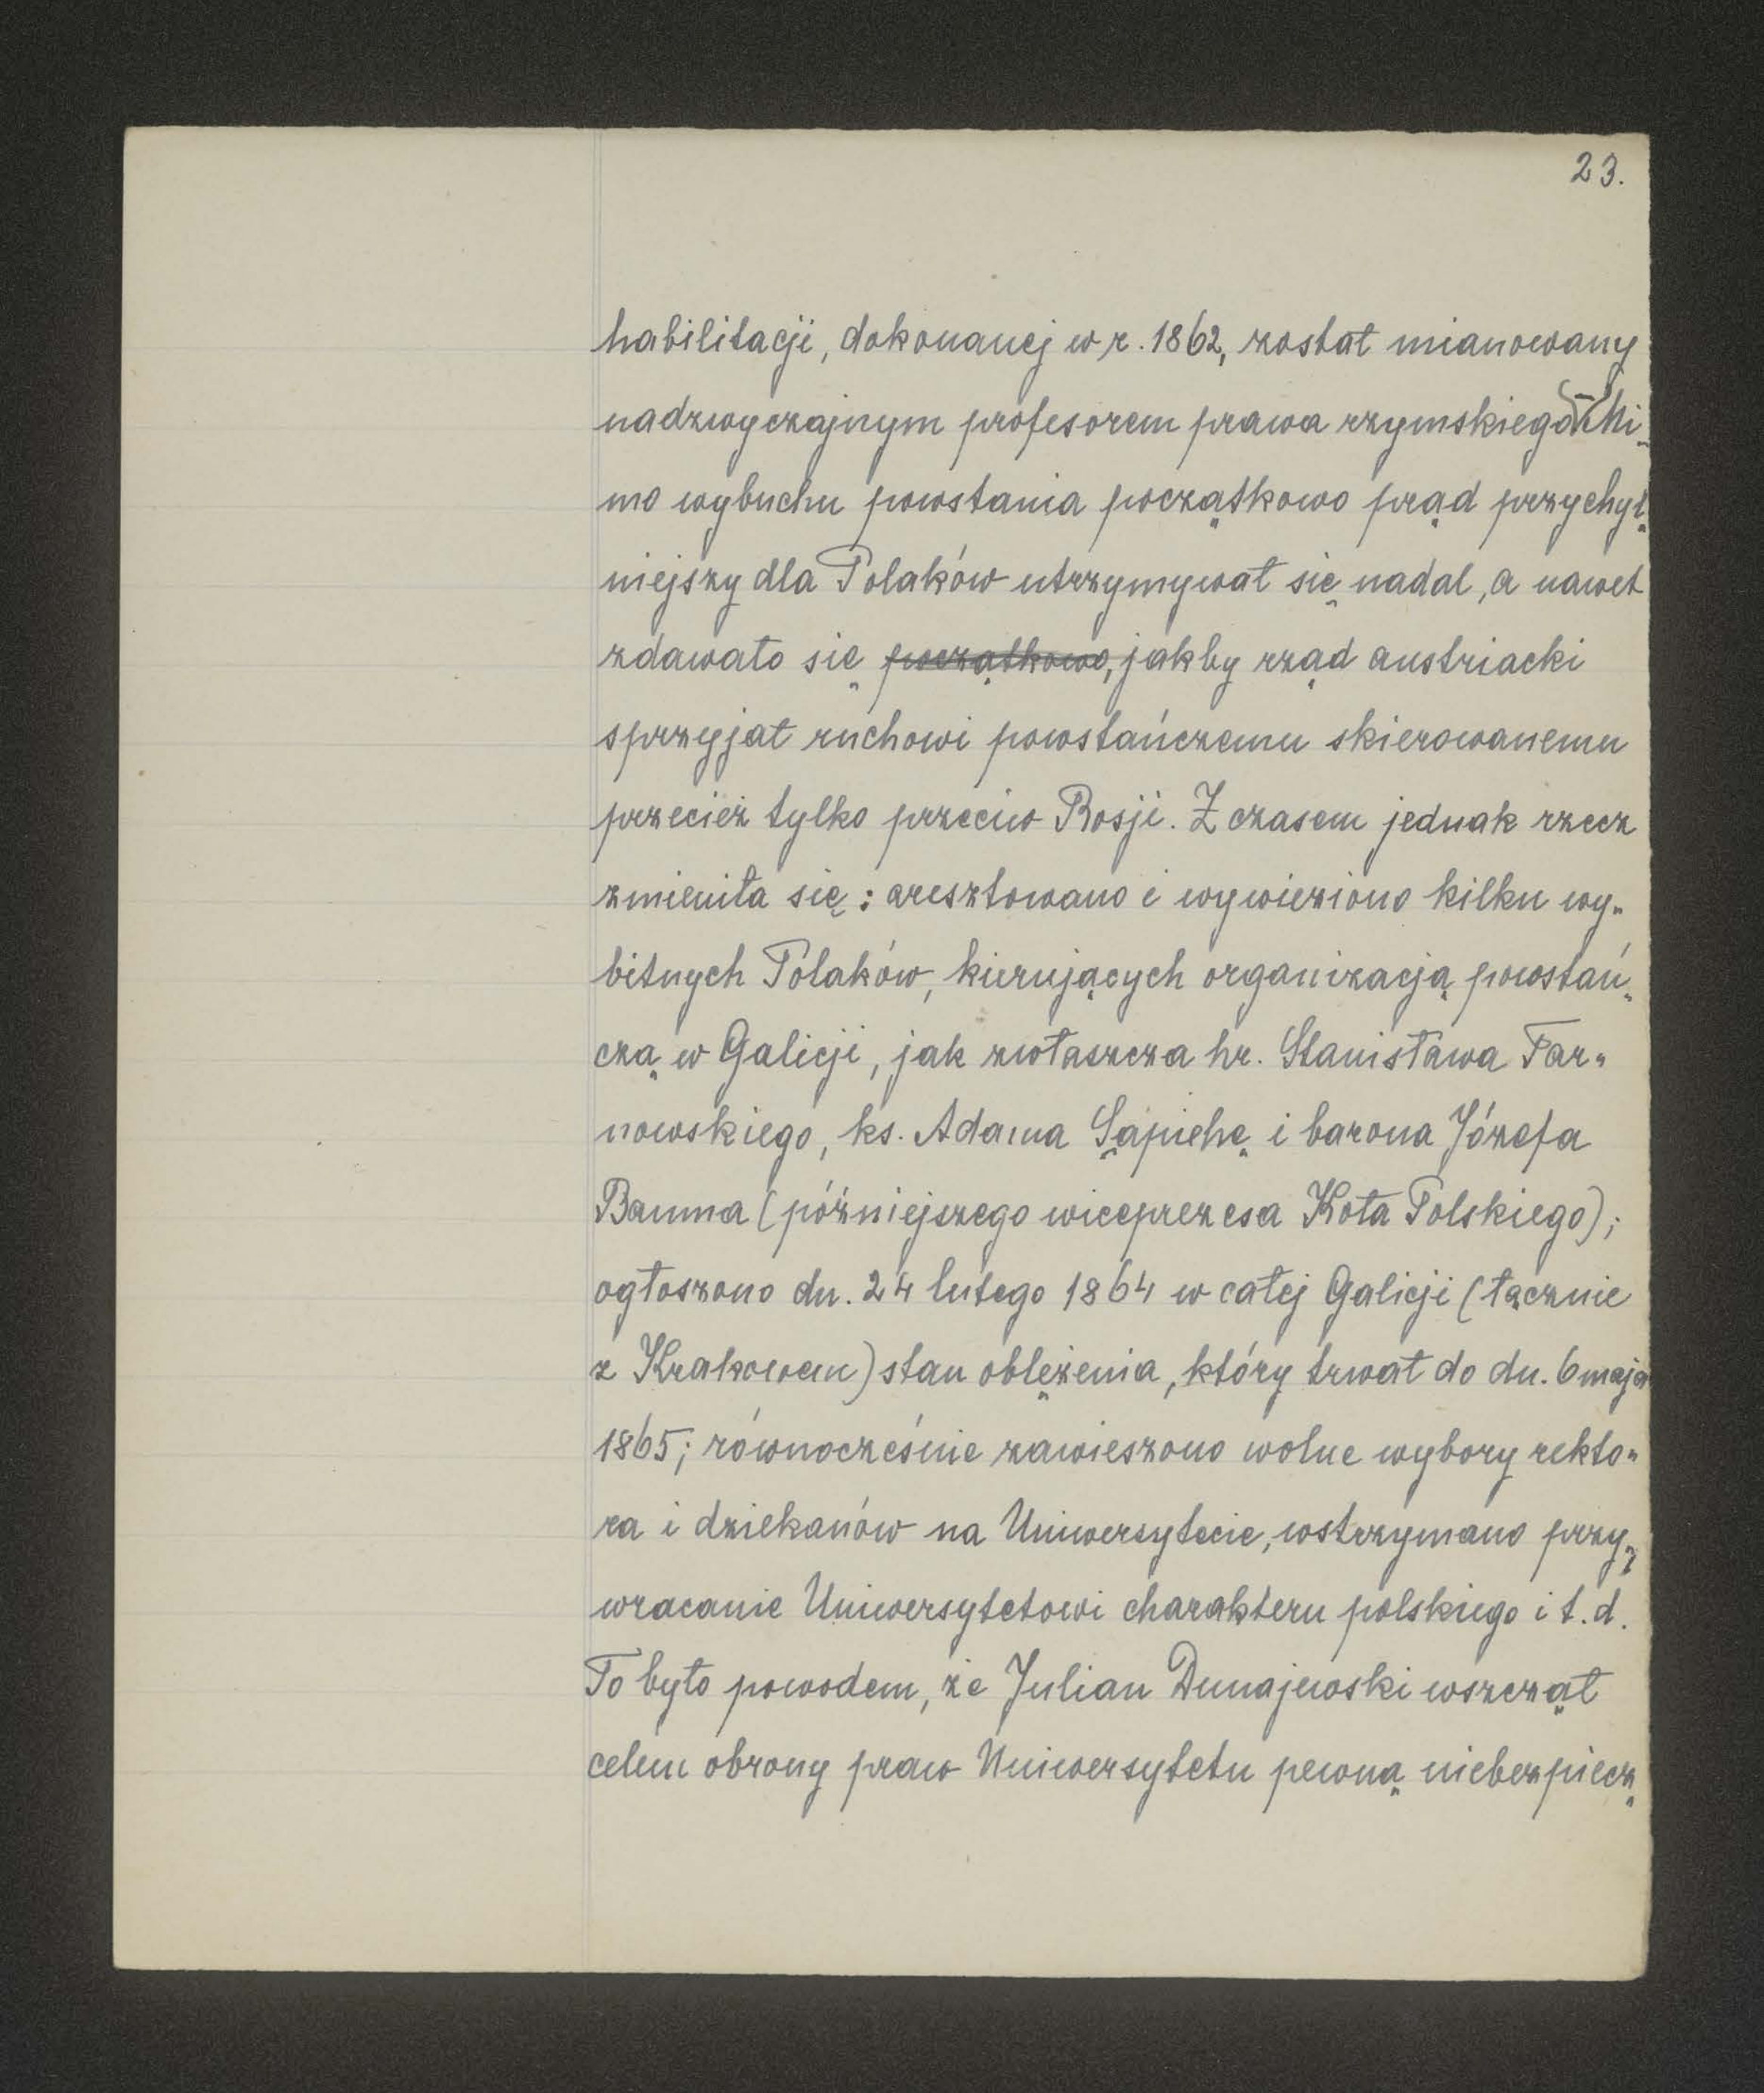 23.
habilitacji, dokonanej w r. 1862, został mianowany
nadzwyczajnym profesorem prawa rzymskiego. Mi-
mo wybuchu powstania początkowo prąd przychyl-
niejszy dla Polaków utrzymywał się nadal, a nawet
zdawało się początkowo, jakby rząd austriacki
sprzyjał ruchowi powstańczemu skierowanemu
przecież tylko przeciw Rosji. Z czasem jednak rzecz
zmieniła się: aresztowano i wywieziono kilku wy-
bitnych Polaków, kierujących organizacją powstań-
czą w Galicji, jak zwłaszcza hr. Stanisława Tar-
nowskiego, ks. Adama Sapiehę i barona Józefa
Bauma (późniejszego wiceprezesa Koła Polskiego);
ogłoszono dn. 24 lutego 1864 w całej Galicji (łącznie
z Krakowem) stan oblężenia, który trwał do dn. 6 maja
1865; równocześnie zawieszono wolne wybory rekto-
ra i dziekanów na Uniwersytecie, wstrzymano przy-
wracanie Uniwersytetowi charakteru polskiego i t. d.
To było powodem, że Julian Dunajewski wszczął
celem obrony praw Uniwersytetu pewną niebezpiecz-